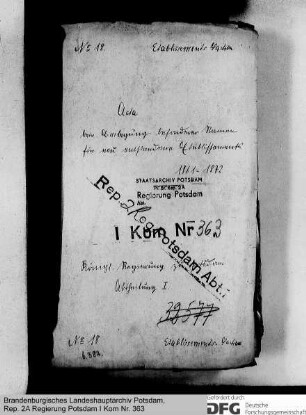 No 18. Etablissements Sachen
Acta
betr. Beilegung besonderer Namen
für neu entstandene Etablissements
1861-1872
STAATSARCHIV POTSDAM
Pr. Br. Rep. 2A
Regierung Potsdam
Rep. 2 Reg. Potsdam Abt. I
I Kom Nr 363
Königl. Regierung
Abtheilung I
No 18
Etablissements Sachen
Brandenburgisches Landeshauptarchiv Potsdam,
Rep. 2A Regierung Potsdam I Kom Nr. 363
Gefördert durch
DFG Deutsche
Forschungsgemeinschaft